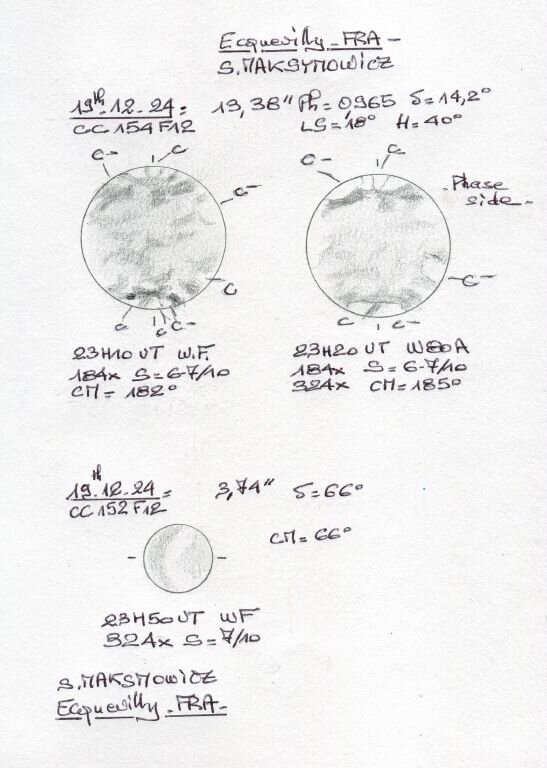 Ecquevilly - FRA -
S. MAKSYMOWICZ
19th-12-24 = 13,38" Ph = 0,965 δ = 14,2°
CC 154 F12 LS = 18° H = 40°
C- C C- C
C- - Phase side -
C C-
C C C- C C-
23H10 UT W.F. 23H20 UT W80A
184x S = 6-7/10 184x S = 6-7/10
CM = 182° 324x CM = 185°
19th-12-24 = 3,74" δ = 66°
CC 152 F12
CM = 66°
23H50 UT WF
324x S = 7/10
S. MAKSMOWICZ
Ecquevilly - FRA -